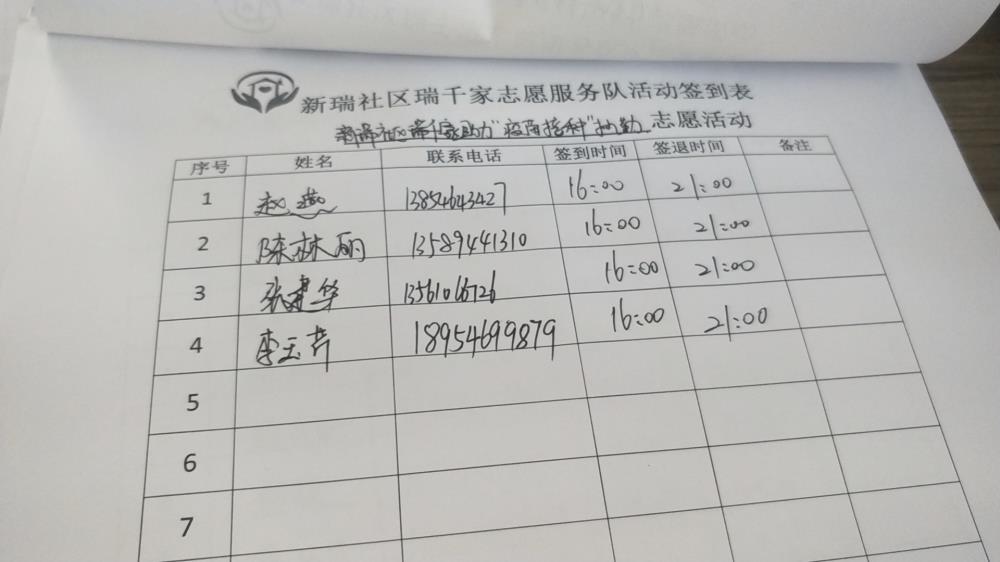 新瑞社区瑞千家志愿服务队活动签到表
社区瑞千家助力"疫苗接种"执勤 志愿活动
序号 姓名 联系电话 签到时间 签退时间 备注
1 赵燕 13854643427 16:00 21:00
2 陈林丽 13589441310 16:00 21:00
3 张建华 13561066726 16:00 21:00
4 李玉芹 18954699879 16:00 21:00
5
6
7